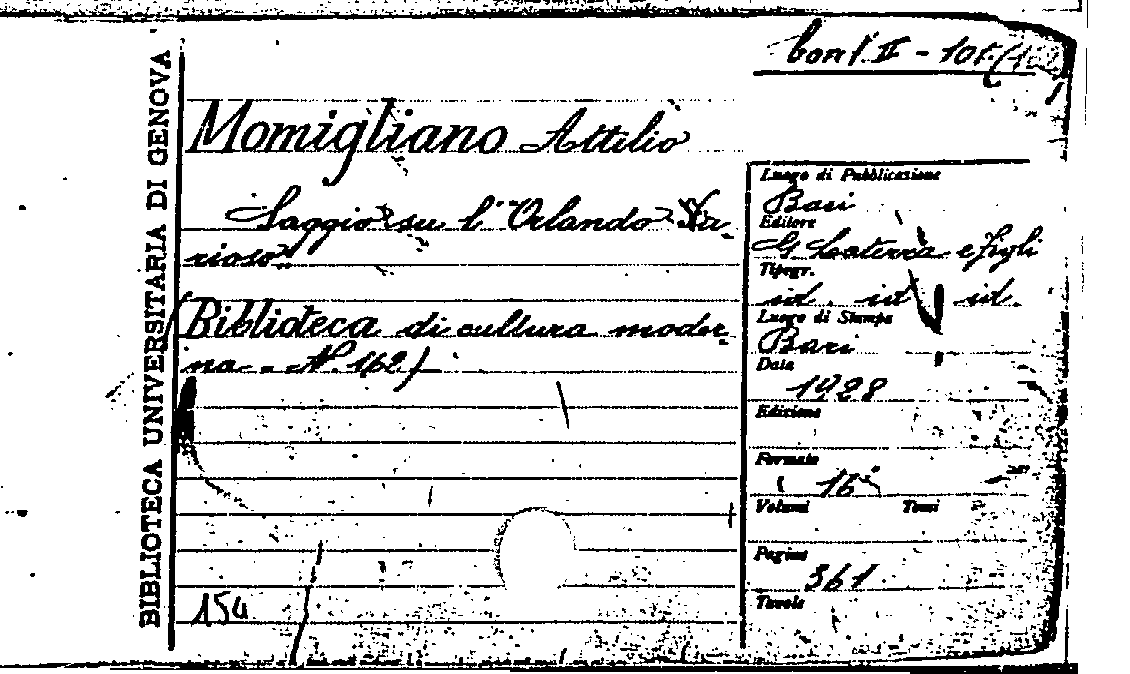 BIBLIOTECA UNIVERSITARIA DI GENOVA
Momigliano Attilio
Saggio su l'"Orlando Fu-
rioso"
(Biblioteca di cultura moder-
na - N. 162)
154
II - 101
Luogo di Pubblicazione
Bari
Editore
G. Laterza e figli
Tipogr.
id. id. id.
Luogo di Stampa
Bari
Data
1928
Edizione
Formato
16°
Volumi Tomi
Pagine
361
Tavole